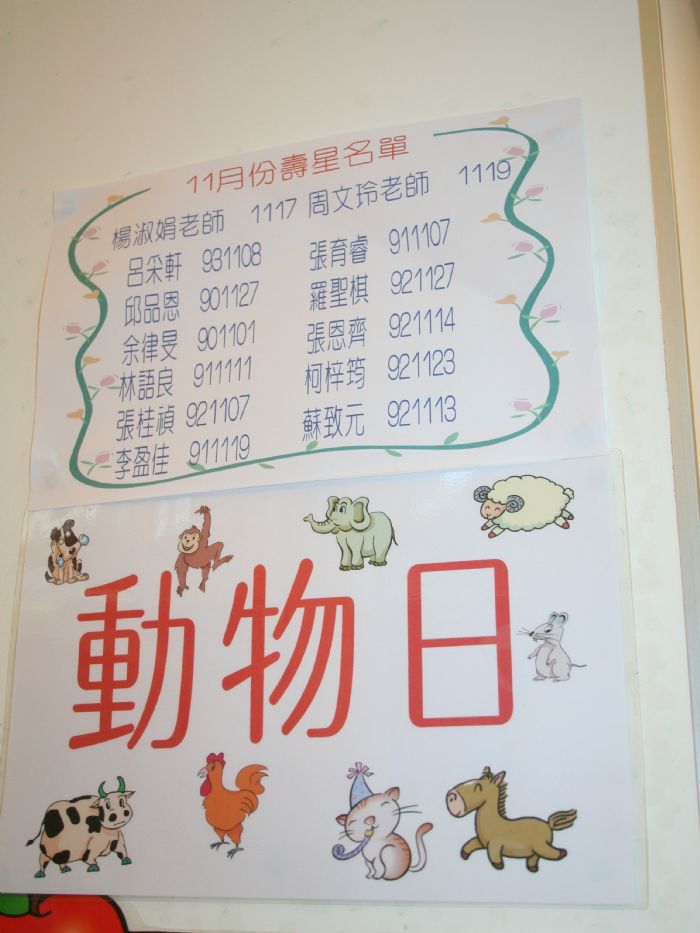 11月份壽星名單
楊淑娟老師 1117 周文玲老師 1119
呂采軒 931108 張育睿 911107
邱品恩 901127 羅聖棋 921127
余律旻 901101 張恩齊 921114
林語良 911111 柯梓筠 921123
張桂禎 921107 蘇致元 921113
李盈佳 911119
動物日